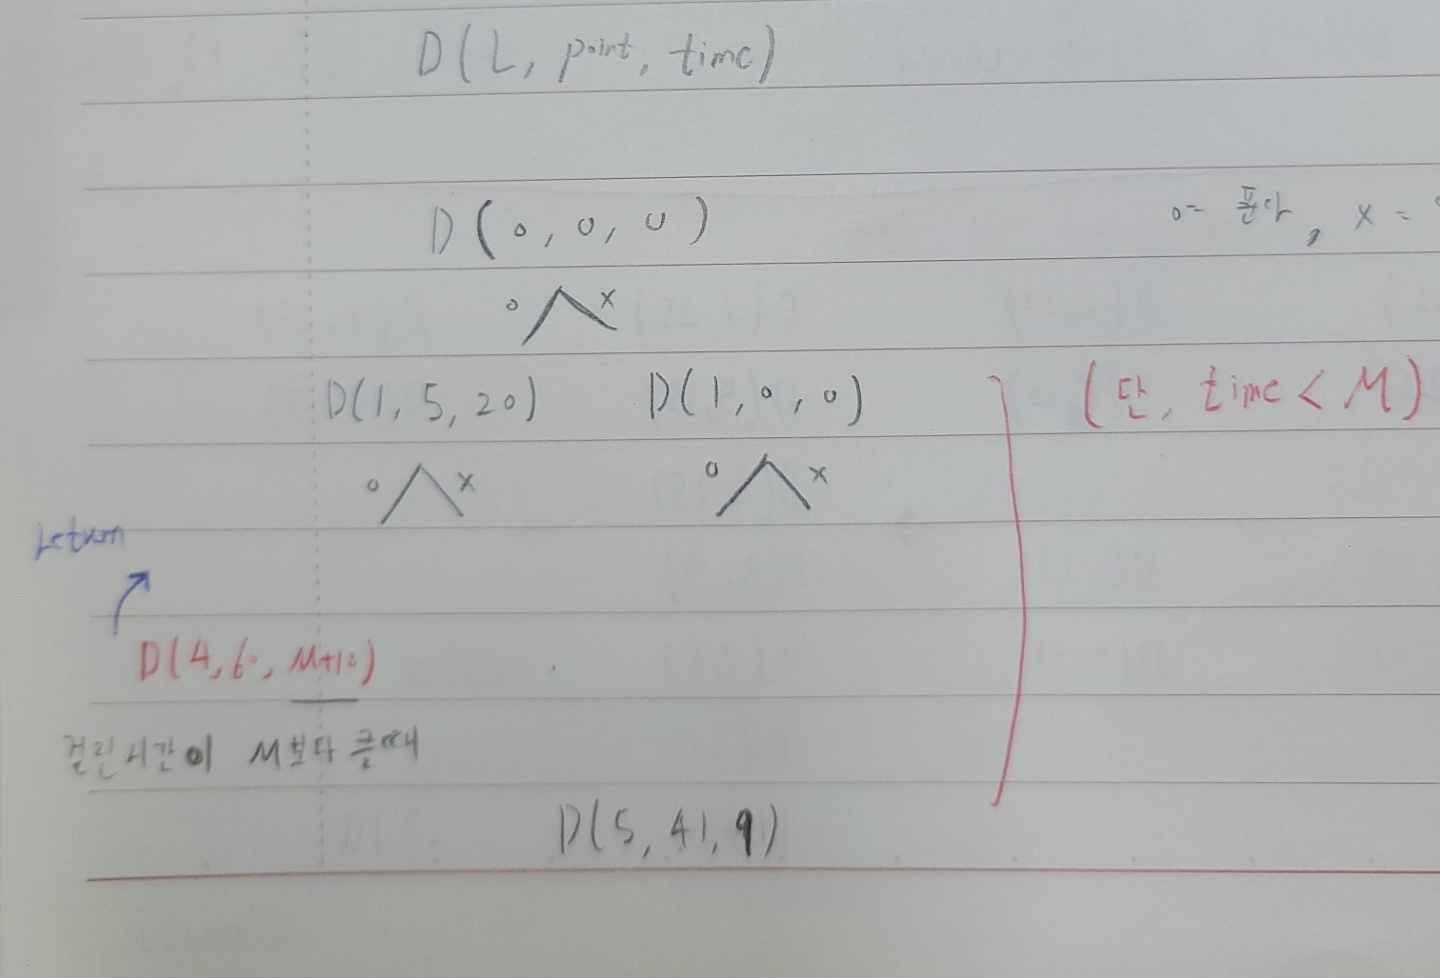 D(L, point, time)
D(0, 0, 0)
o= 푼다, x =
o x
D(1, 5, 20) D(1, 0, 0) (단, time < M)
o x o x
return
D(4, 60, M+10)
걸린시간이 M보다 클때
D(5, 41, 9)